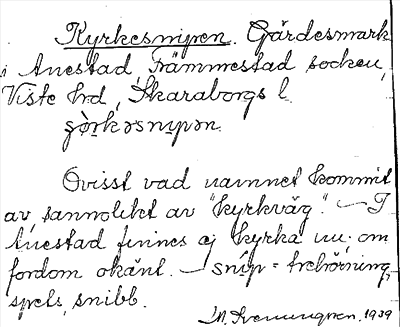 Kyrkesnipen. Gärdesmark
i Anestad, Främmestad socken,
Viste hrd, Skaraborgs l.
Ovisst vad namnet kommit
av, sannolikt av "kyrkväg". — I
Anestad finnes ej kyrka nu; om
fordom okänt. — snip = trehörning,
spets, snibb.
1939